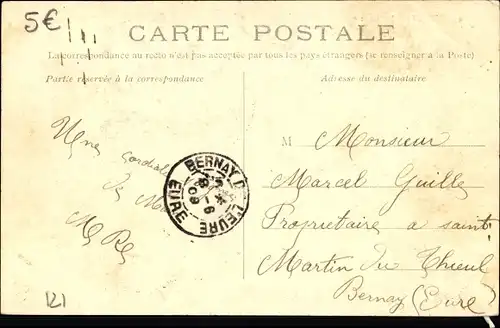 5€
CARTE POSTALE
La correspondance au recto n'est pas acceptée par tous les pays étrangers (se renseigner à la Poste)
Partie réservée à la correspondance
Adresse du destinataire
Une cordiale
de
M
BERNAY DE L'EURE
EURE
M Monsieur
Marcel Guille
Propriétaire a saint
Martin du Thieul
Bernay (Eure)
121